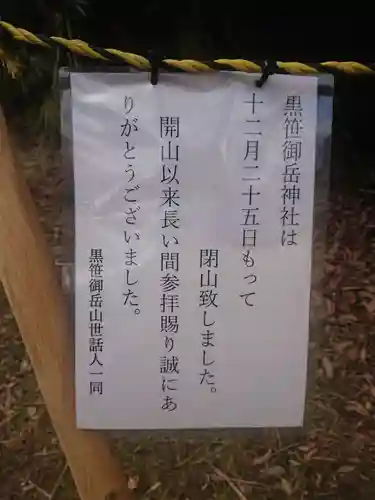 黒笹御岳神社は
十二月二十五日もって
閉山致しました。
開山以来長い間参拝賜り誠にあ
りがとうございました。
黒笹御岳山世話人一同